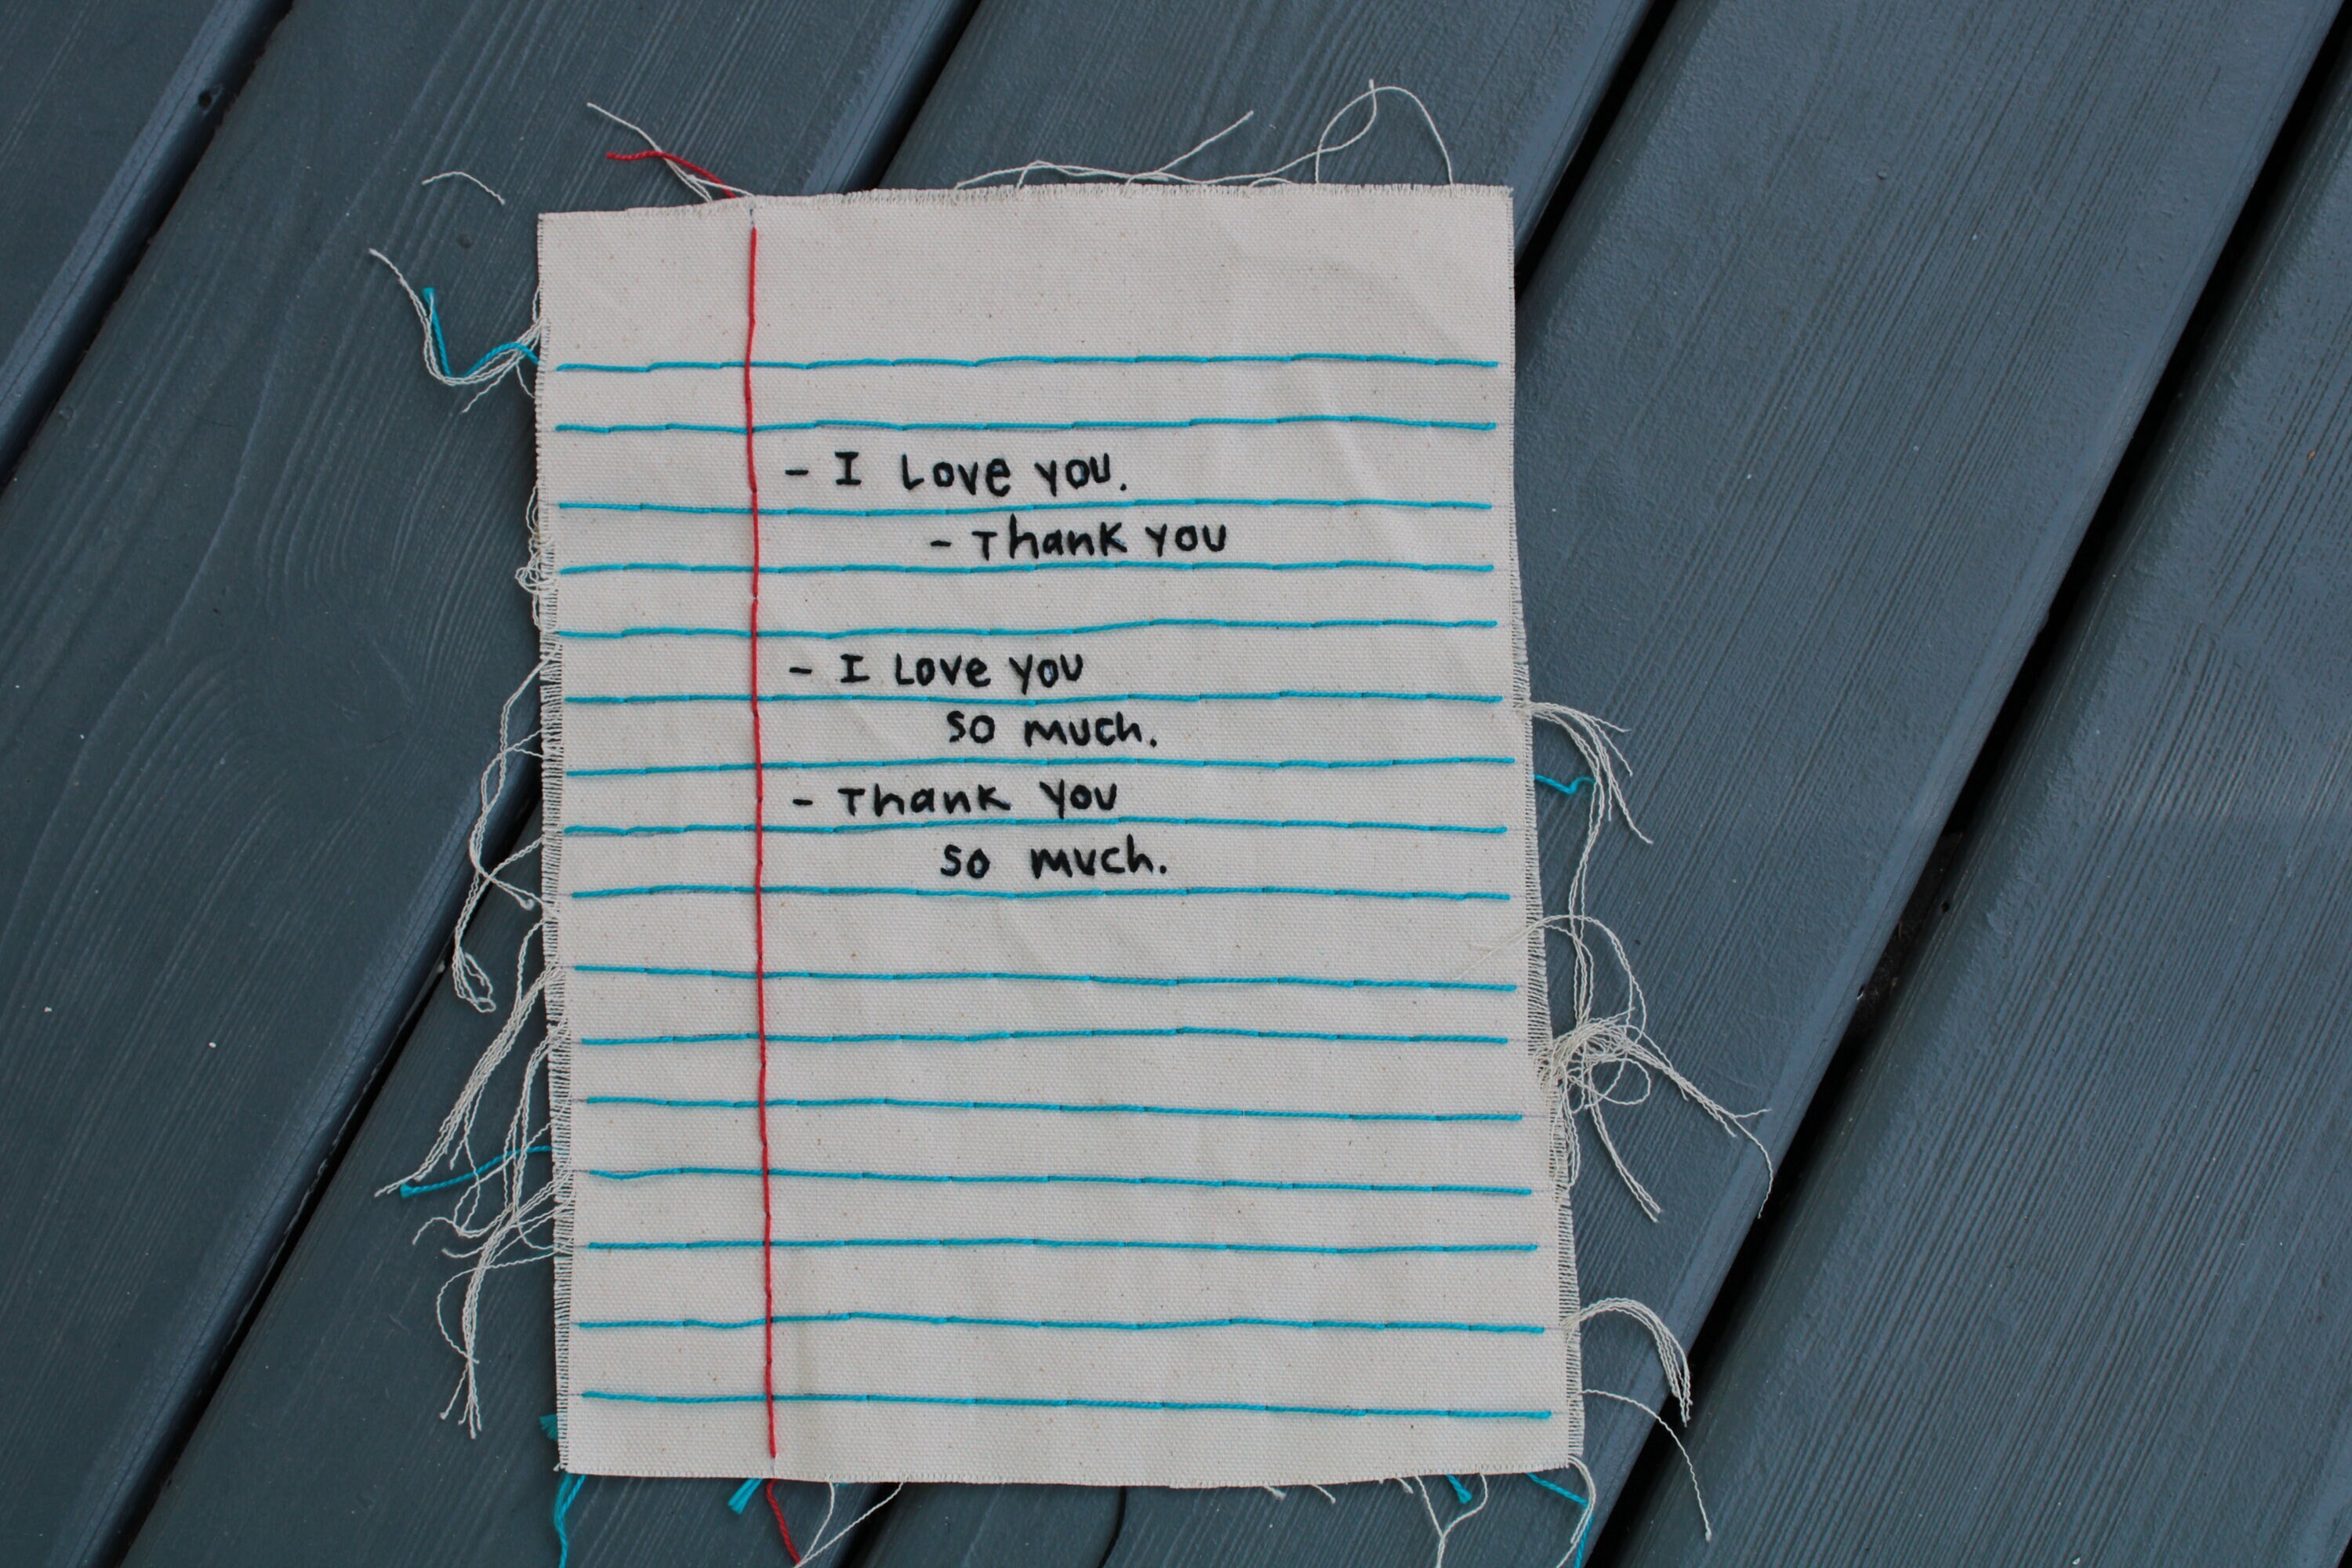 - I Love you.
- Thank you
- I Love you
so much.
- Thank you
so much.